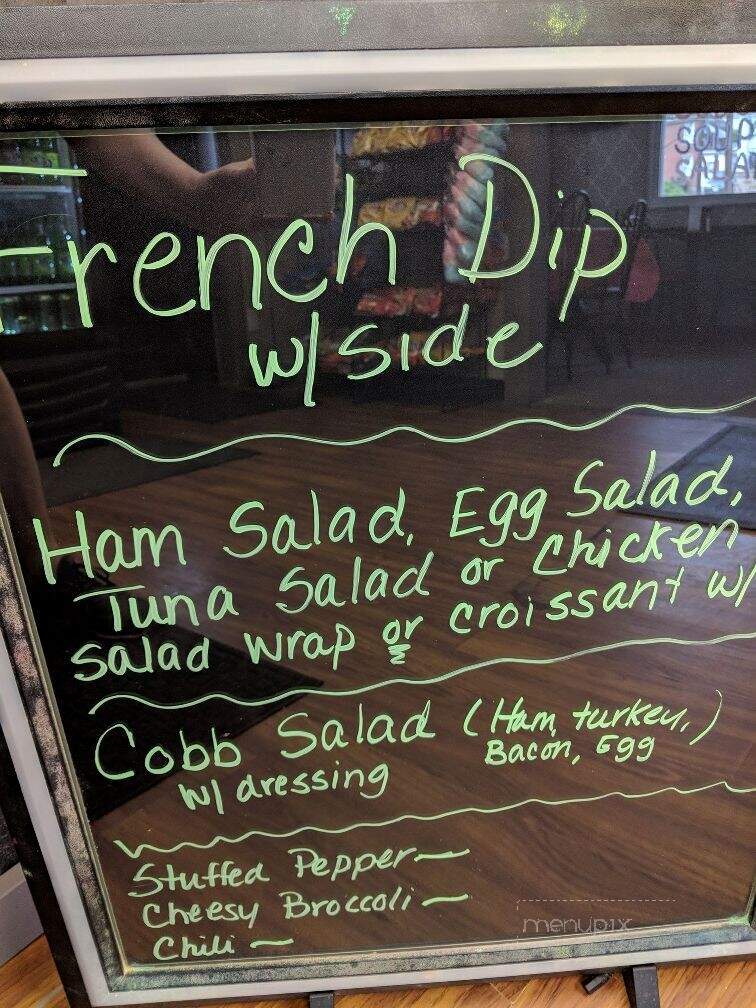 SOUP
SALA
French Dip
w/side
Ham Salad, Egg Salad,
Tuna Salad or Chicken
Salad wrap or croissant w/
Cobb Salad (Ham, turkey,)
Bacon, Egg
w/ dressing
Stuffed Pepper—
Cheesy Broccoli—
Chili—
menupix